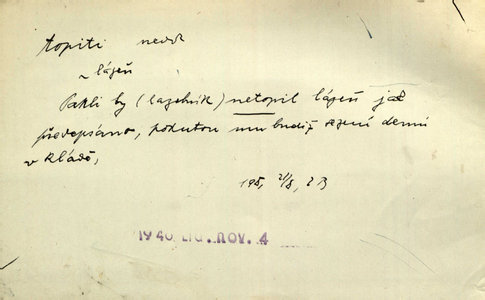 topiti nedok
~ lázeň
Pakli by (lazebník) netopil lázeň jak
předepsáno, pokutou mu budiž sezení denní
v kládě,
195, 21/8, 2 B
1940 LIG. NOV. 4